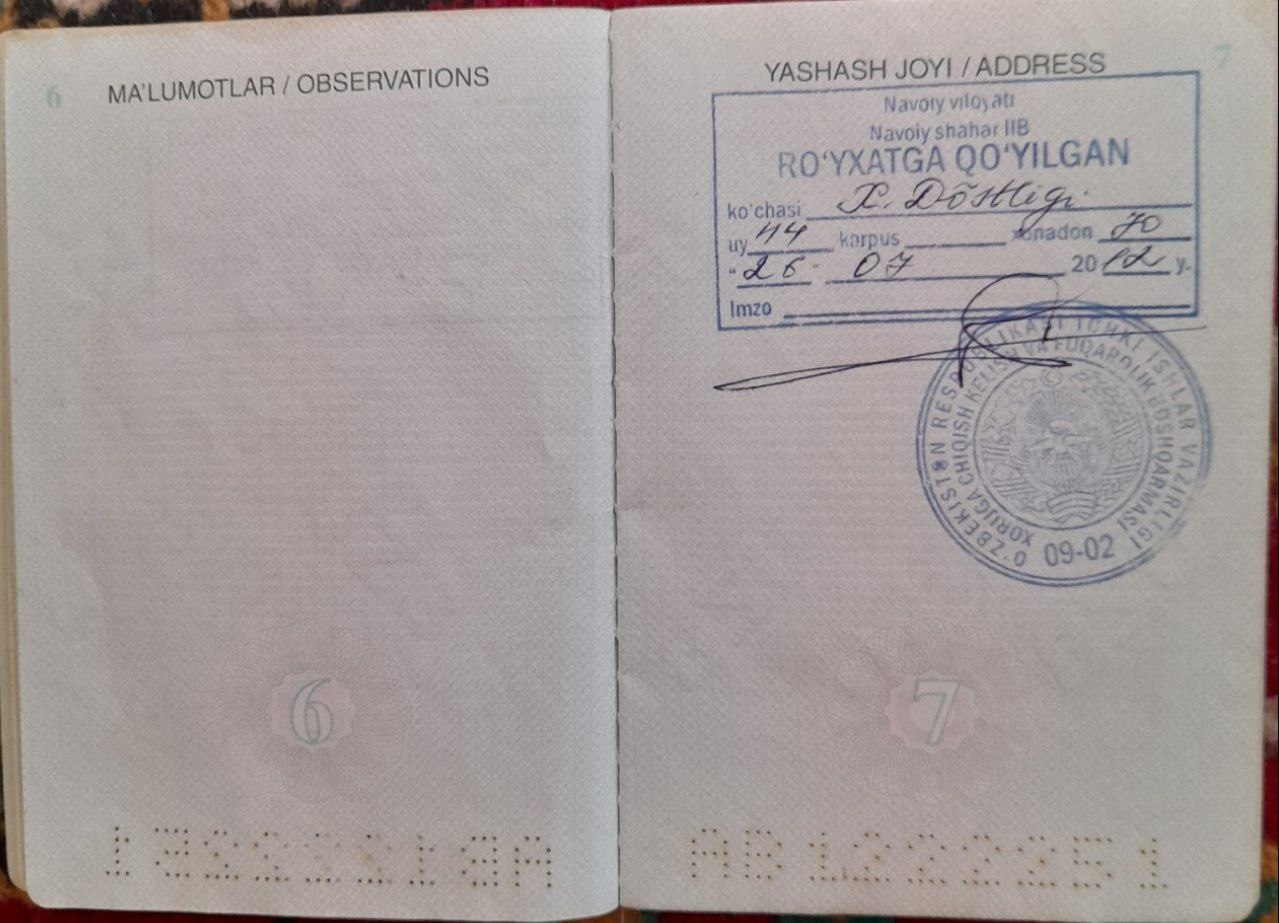 6
MA'LUMOTLAR / OBSERVATIONS
6
7
YASHASH JOYI / ADDRESS
Navoiy viloyati
Navoiy shahar IIB
RO'YXATGA QO'YILGAN
ko'chasi X. Dōstligi
uy 44 korpus xonadon 70
"26" 07 2012 y.
Imzo
O'ZBEKISTON RESPUBLIKASI ICHKI ISHLAR VAZIRLIGI
XORIJGA CHIQISH KELISH VA FUQAROLIK BOSHQARMASI
09-02
7
AB1222251